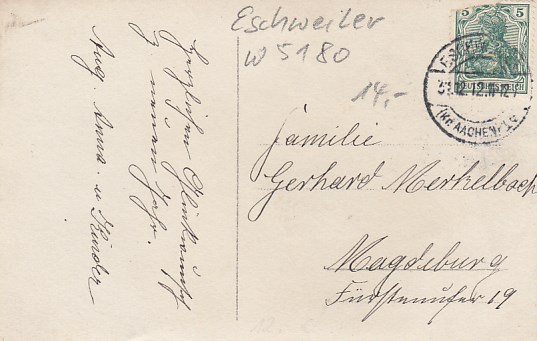 Eschweiler
W 5180
14,-
5
DEUTSCHES REICH
31.12.12
(Kr. AACHEN)
Familie
Gerhard Merkelbach
Magdeburg
Fürstenufer 19
Herzlichen Glückwunsch
z. neuen Jahr.
Aug. Anna u Kinder